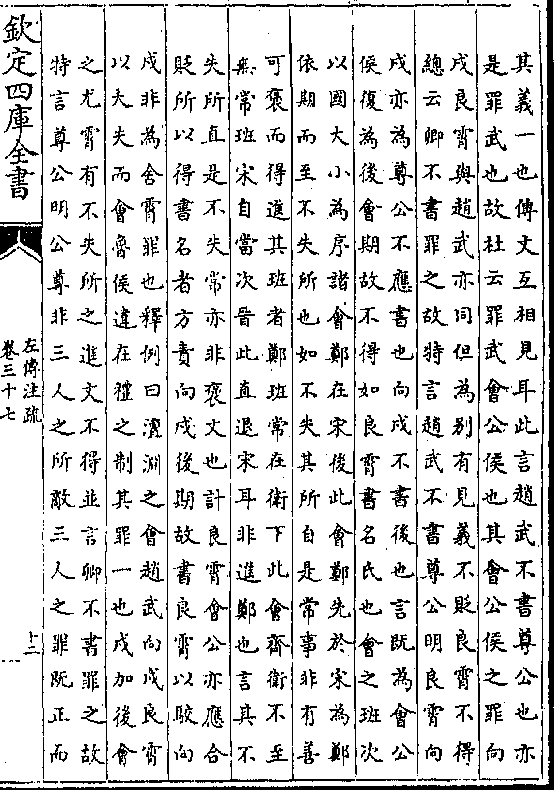 其義一也傳文互相見耳此言趙武不書尊公也亦
是罪武也故杜云罪武會公侯也其會公侯之罪向
戌良霄與趙武亦同但為別有見義不貶良霄不得
總云卿不書罪之故特言趙武不書尊公明良霄向
戌亦為尊公不應書也向戌不書後也言既為會公
侯復為後會期故不得如良霄書名氏也會之班次
以國大小為序諸會鄭在宋後此會鄭先於宋為鄭
依期而至不失所也如不失其所自是常事非有善
可褒而得進其班者鄭班常在衛下此會齊衛不至
無常班宋自當次晉此直退宋耳非進鄭也言其不
失所直是不失常亦非褒文也計良霄會公亦應合
貶所以得書名者方責向戌後期故書良霄以駮向
戌非為舍霄罪也釋例曰澶淵之會趙武向戌良霄
以大夫而會魯侯違在禮之制其罪一也戌加後會
之尤霄有不失所之進文不得並言卿不書罪之故
特言尊公明公尊非三人之所敵三人之罪既正而
欽定四庫全書
左傳注疏
卷三十七
十二